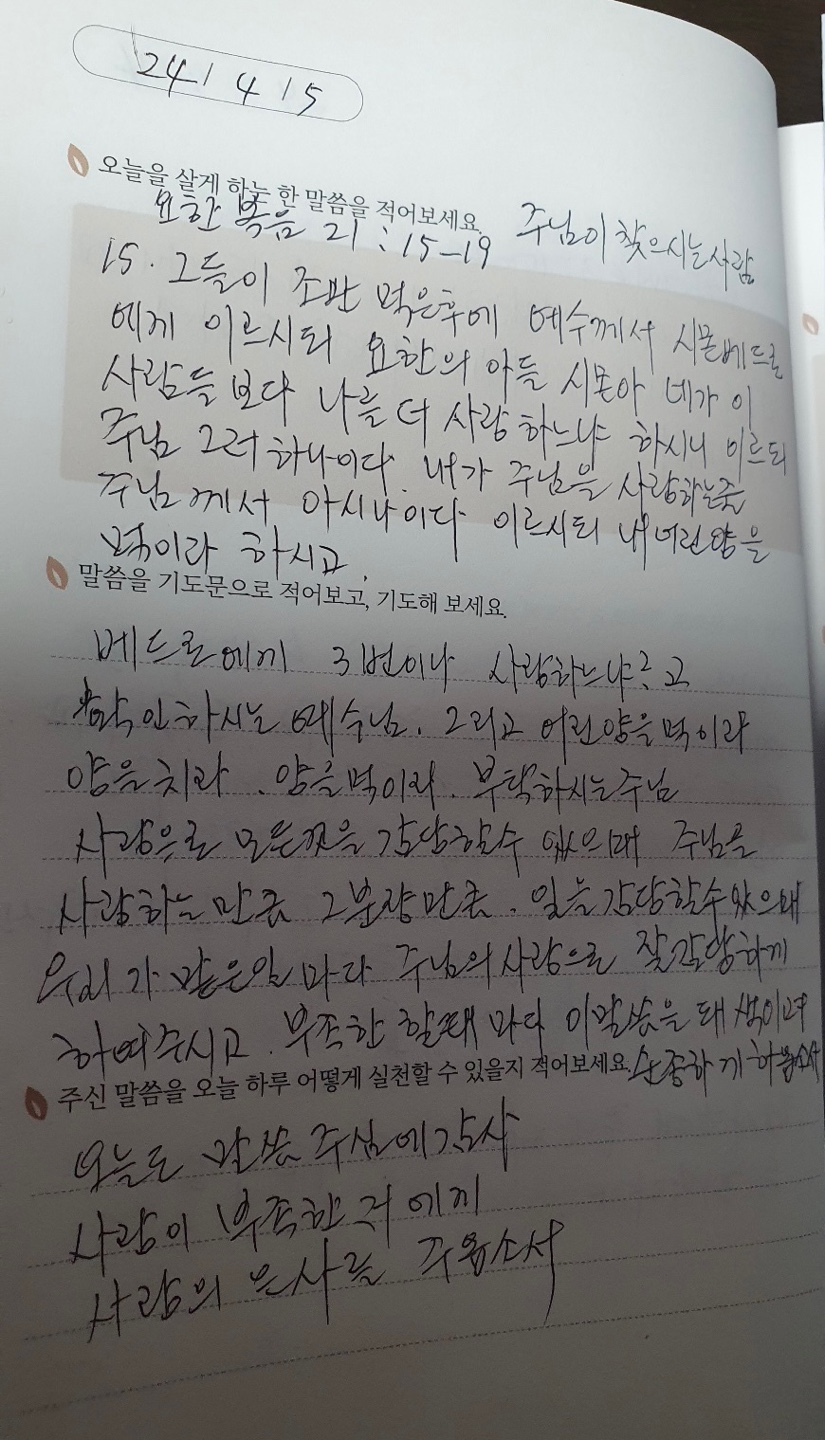 24 / 4 / 5
오늘을 살게 하는 한 말씀을 적어보세요.
요한복음 21:15-19 주님이 찾으시는 사람
15. 그들이 조반 먹은후에 예수께서 시몬베드로
에게 이르시되 요한의 아들 시몬아 네가 이
사람들 보다 나를 더 사랑 하느냐 하시니 이르되
주님 그러 하나이다. 내가 주님을 사랑하는줄
주님께서 아시나이다 이르시되 내 어린양을
먹이라 하시고,
말씀을 기도문으로 적어보고, 기도해 보세요.
베드로에게 3번이나 사랑하느냐? 고
확인하시는 예수님. 그리고 어린양을 먹이라
양을 치라. 양을 먹이라. 부탁하시는 주님
사랑으로 모든것을 감당할수 있으매 주님을
사랑하는 만큼 그분량만큼. 일을 감당할수 있으매
우리가 맡은일 마다 주님의 사랑으로 잘감당하게
하여주시고. 부족한 할때 마다 이말씀을 되새이며
순종하게 하옵소서
주신 말씀을 오늘 하루 어떻게 실천할 수 있을지 적어보세요.
오늘도 말씀 주심에 감사
사랑이 부족한 저에게
사랑의 은사를 주옵소서